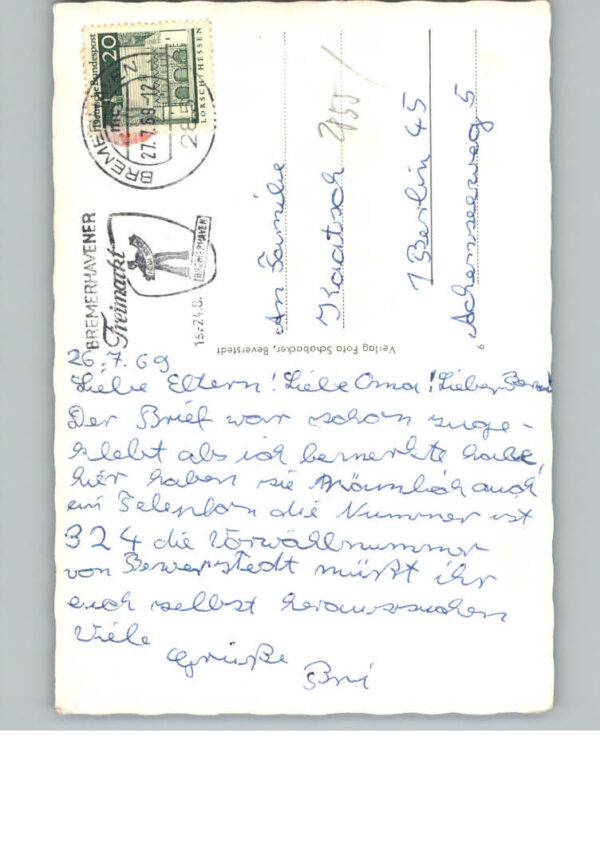 26.7.69
Liebe Eltern! Liebe Oma! Lieber
Der Brief war schon zuge-
klebt als ich bemerkte habe,
hier haben sie nämlich auch
ein Telephon die Nummer ist
324 die Vorwahlnummer
von Beverstedt müßt ihr
euch selbst heraussuchen
Viele
Grüße
Bri
An Familie
Kaatsch
1 Berlin 45
Achenseeweg 5
Verlag Foto Schabacker, Beverstedt
6
Deutsche Bundespost
20
LORSCH/HESSEN
27.7.69-12
285
BREMERHAVENER
Freimarkt
BREMERHAVEN
15.-24.8.